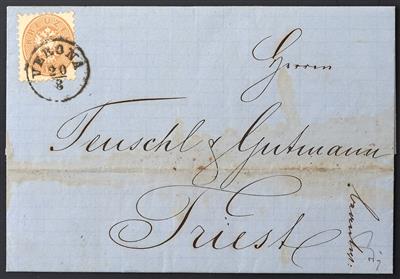 KREUZER
VERONA
20
8
Herrn
Teuschl & Gutmann
Triest